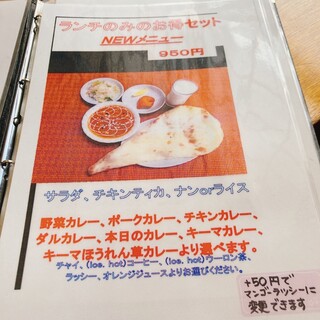 ランチのみのお得セット
NEWメニュー
950円
サラダ、チキンティカ、ナンorライス
野菜カレー、ポークカレー、チキンカレー、
ダルカレー、本日のカレー、キーマカレー、
キーマほうれん草カレーより選べます。
チャイ、(ice, hot)コーヒー、(ice, hot)ウーロン茶、
ラッシー、オレンジジュースよりお選びください。
+50円で
マンゴーラッシーに
変更できます